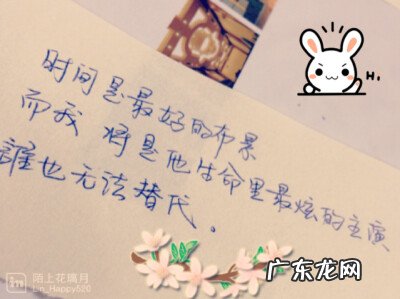 Hi.
时间是最好的布景
而我 将是他生命里最炫的主演
誰也无法替代。
in
陌上花漪月
Lin_Happy520
广东龙网